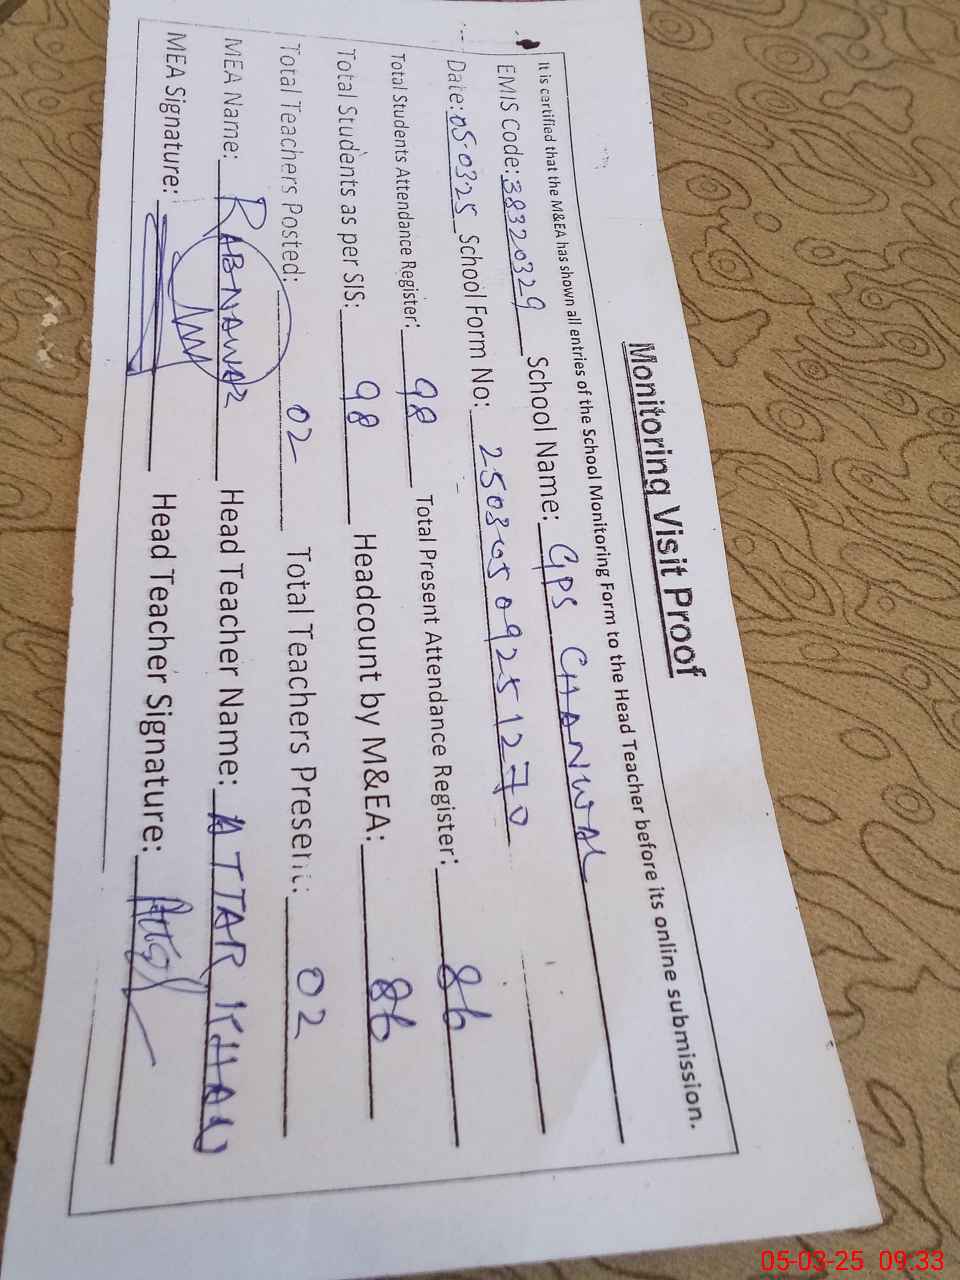 Monitoring Visit Proof
It is certified that the M&EA has shown all entries of the School Monitoring Form to the Head Teacher before its online submission.
EMIS Code: 38320329 School Name: GPS CHANWAL
Date: 05-0325 School Form No: 25030509251270
Total Students Attendance Register: 98 Total Present Attendance Register: 86
Total Students as per SIS: 98 Headcount by M&EA: 86
Total Teachers Posted: 02 Total Teachers Present: 02
MEA Name: RABNAWAZ Head Teacher Name: ATTAR KHAN
MEA Signature: Head Teacher Signature:
05-03-25 09:33